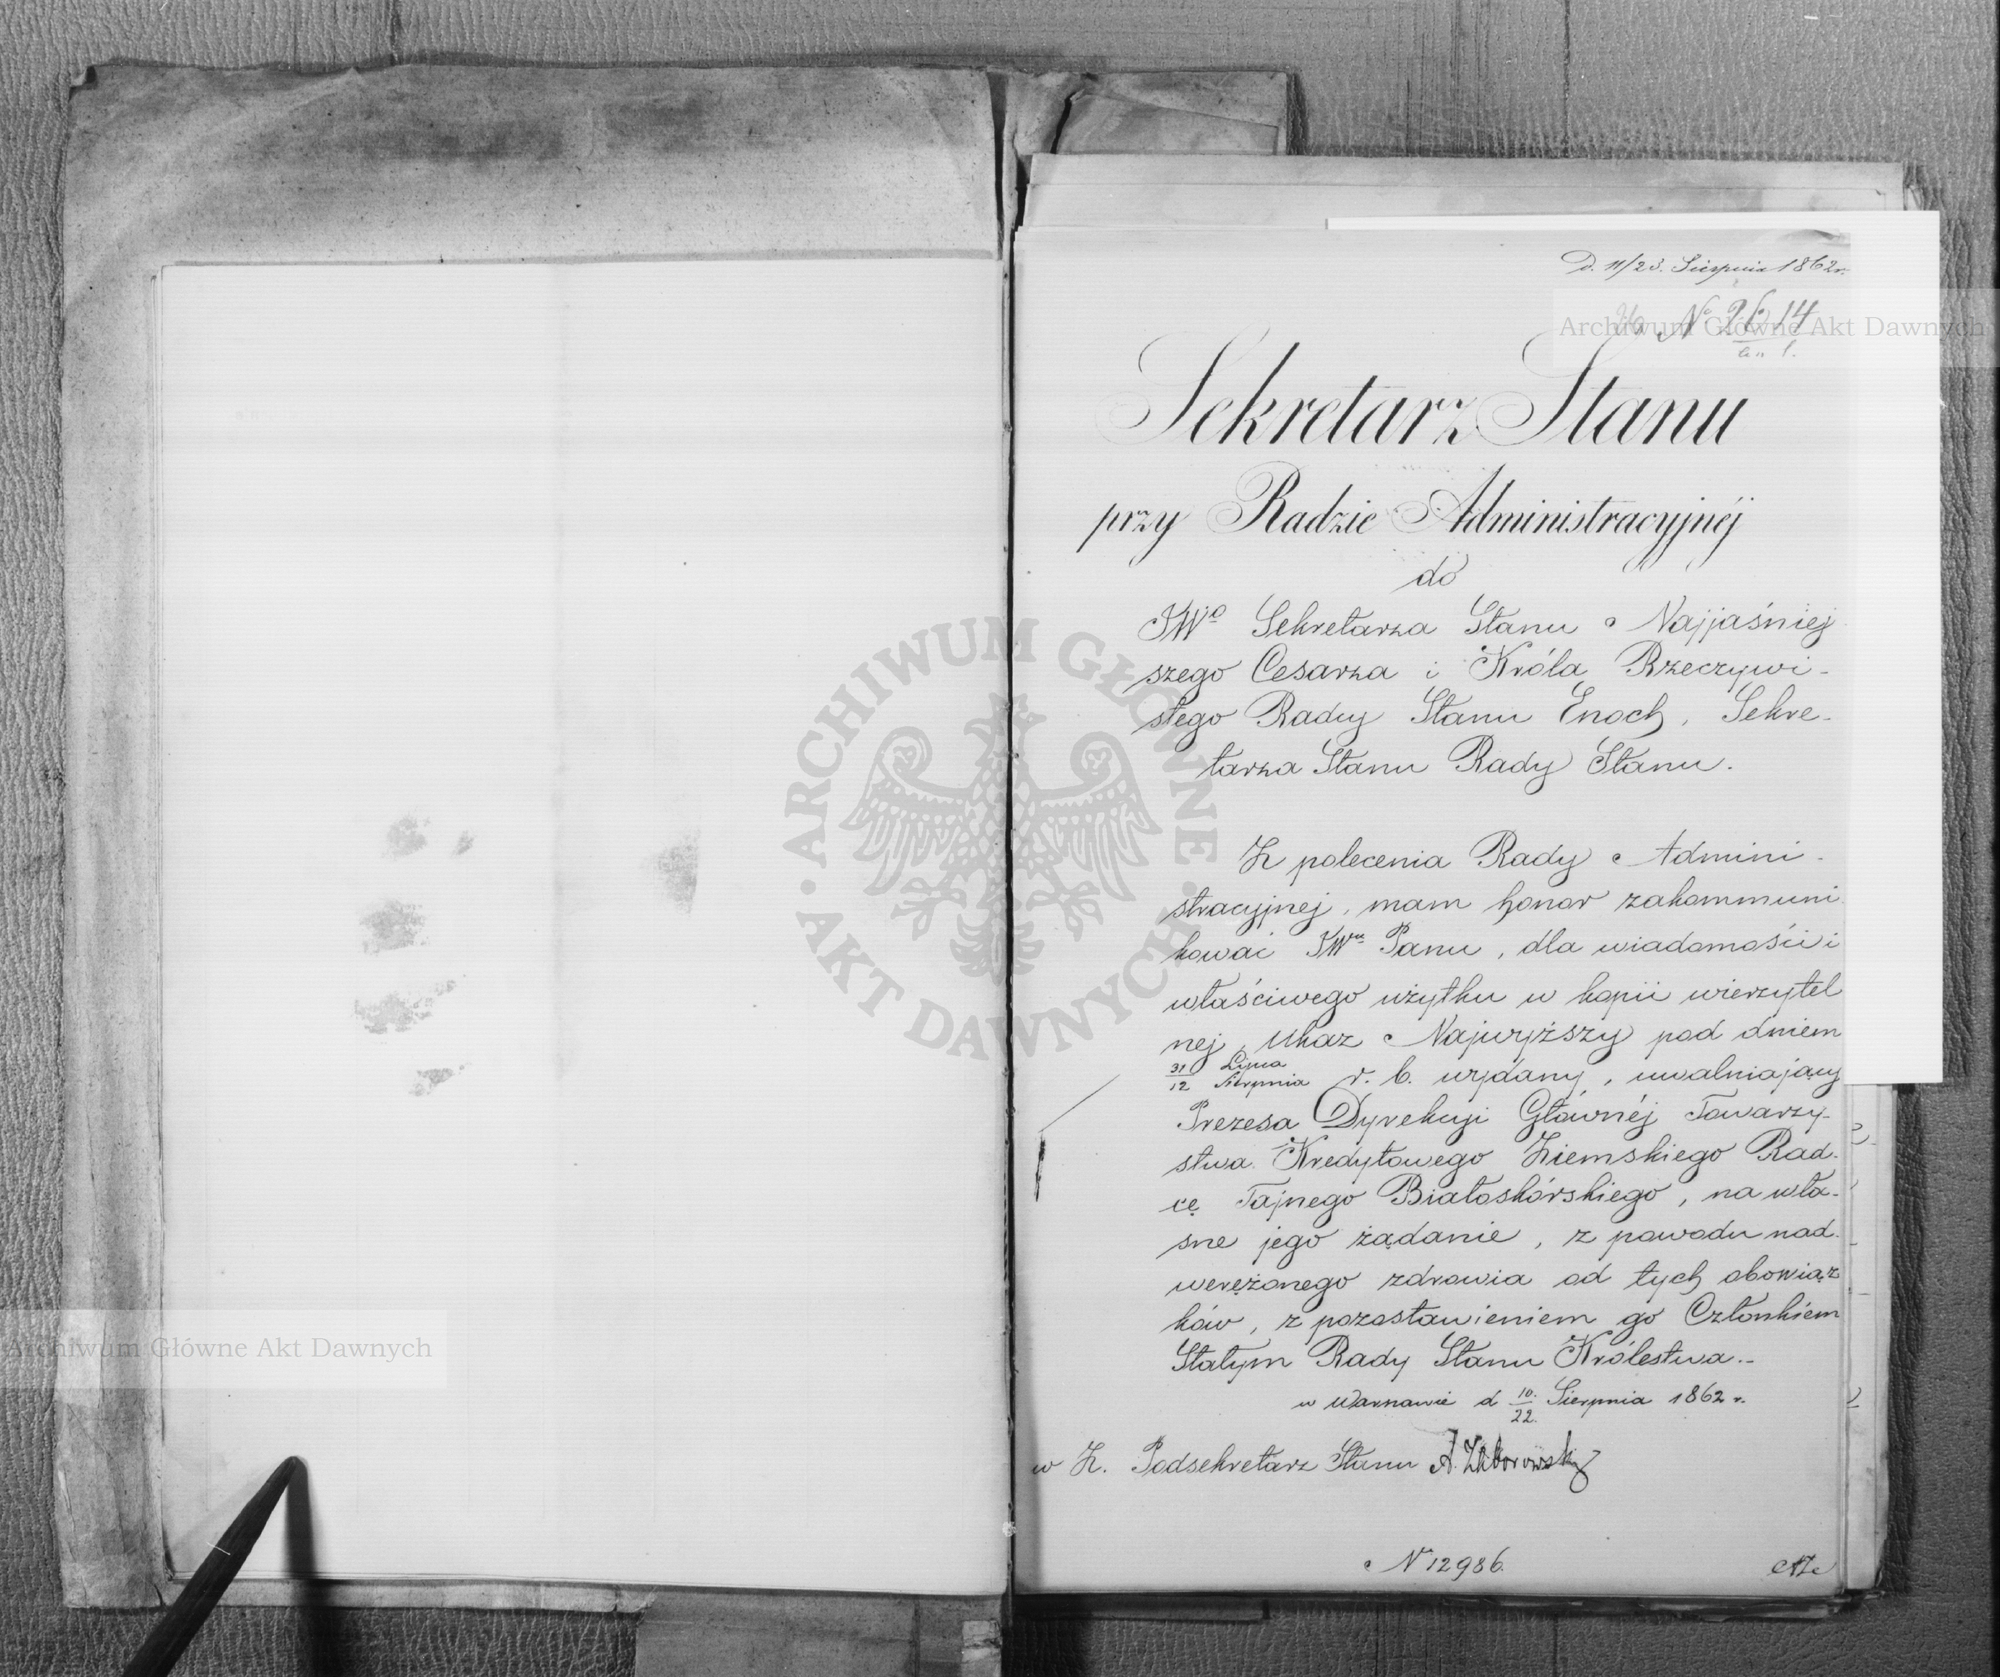 D. 11/23. Sierpnia 1862 r.
№ 2614
Sekretarz Stanu
przy Radzie Administracyjnéj
do
JWo Sekretarza Stanu Najjaśniej
szego Cesarza i Króla, Rzeczywi-
stego Radcy Stanu Enoch, Sekre-
tarza Stanu Rady Stanu.
Z polecenia Rady Admini-
stracyjnej, mam honor zakommuni
kować JWu Panu, dla wiadomości i
właściwego użytku w kopii wierzytel
nej, Ukaz Najwyższy pod dniem
31/12 Lipca/Sierpnia r. b. wydany, uwalniający
Prezesa Dyrekcyi Głównéj Towarzy-
stwa Kredytowego Ziemskiego Rad-
cę Tajnego Białoskórskiego, na wła-
sne jego żądanie, z powodu nad-
werężonego zdrowia od tych obowiąz
ków, z pozostawieniem go Członkiem
Stałym Rady Stanu Królestwa.-
w Warszawie d 10./22. Sierpnia 1862 r.
w Z. Podsekretarz Stanu A. Zaborowski
№ 12986.
Archiwum Główne Akt Dawnych
Archiwum Główne Akt Dawnych
ARCHIWUM GŁÓWNE · AKT DAWNYCH ·